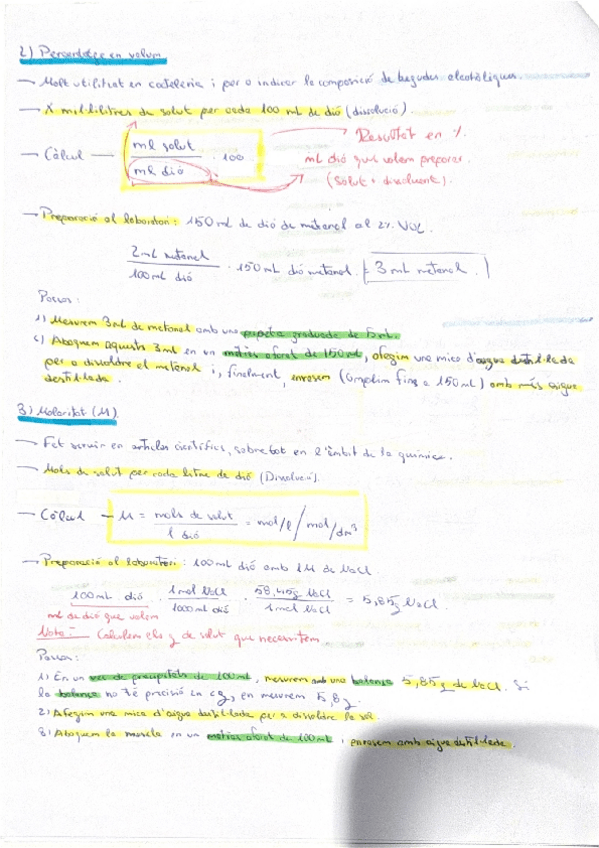 2) Percentatge en volum
→ Molt utilitzat en cocteleria i per a indicar la composició de begudes alcohòliques.
→ X mil·lilitres de solut per cada 100 mL de dió (dissolució)
→ Càlcul → ml solut / ml dió · 100
Resultat en %.
ml dió que volem preparar.
(solut + dissolvent).
→ Preparació al laboratori: 150 ml de dió de metanol al 2% Vol.
2mL metanol / 100mL dió · 150mL dió metanol = 3 mL metanol.
Passos:
1) Mesurem 3mL de metanol amb una pipeta graduada de 5mL.
2) Aboquem aquests 3ml en un matràs aforat de 150ml, afegim una mica d'aigua destil·lada
per a dissoldre el metanol i, finalment, enrasem (omplim fins a 150ml) amb més aigua
destil·lada.
3) Molaritat (M).
→ Fet servir en articles científics, sobretot en l'àmbit de la química.
→ Mols de solut per cada litre de dió (Dissolució).
→ Càlcul → M = mols de solut / l dió = mol/l / mol/dm³
→ Preparació al laboratori: 100ml dió amb 1M de NaCl
100mL dió · 1mol NaCl / 1000ml dió · 58,45g NaCl / 1mol NaCl = 5,85g NaCl.
ml de dió que volem
Nota: Calculem els g de solut que necessitem
Passos:
1) En un vas de precipitats de 100ml, mesurem amb una balança 5,85g de NaCl. Si
la balança no té precisió en cg, en mesurem 5,8g.
2) Afegim una mica d'aigua destil·lada per a dissoldre la sal.
3) Aboquem la mescla en un matràs aforat de 100ml i enrasem amb aigua destil·lada.